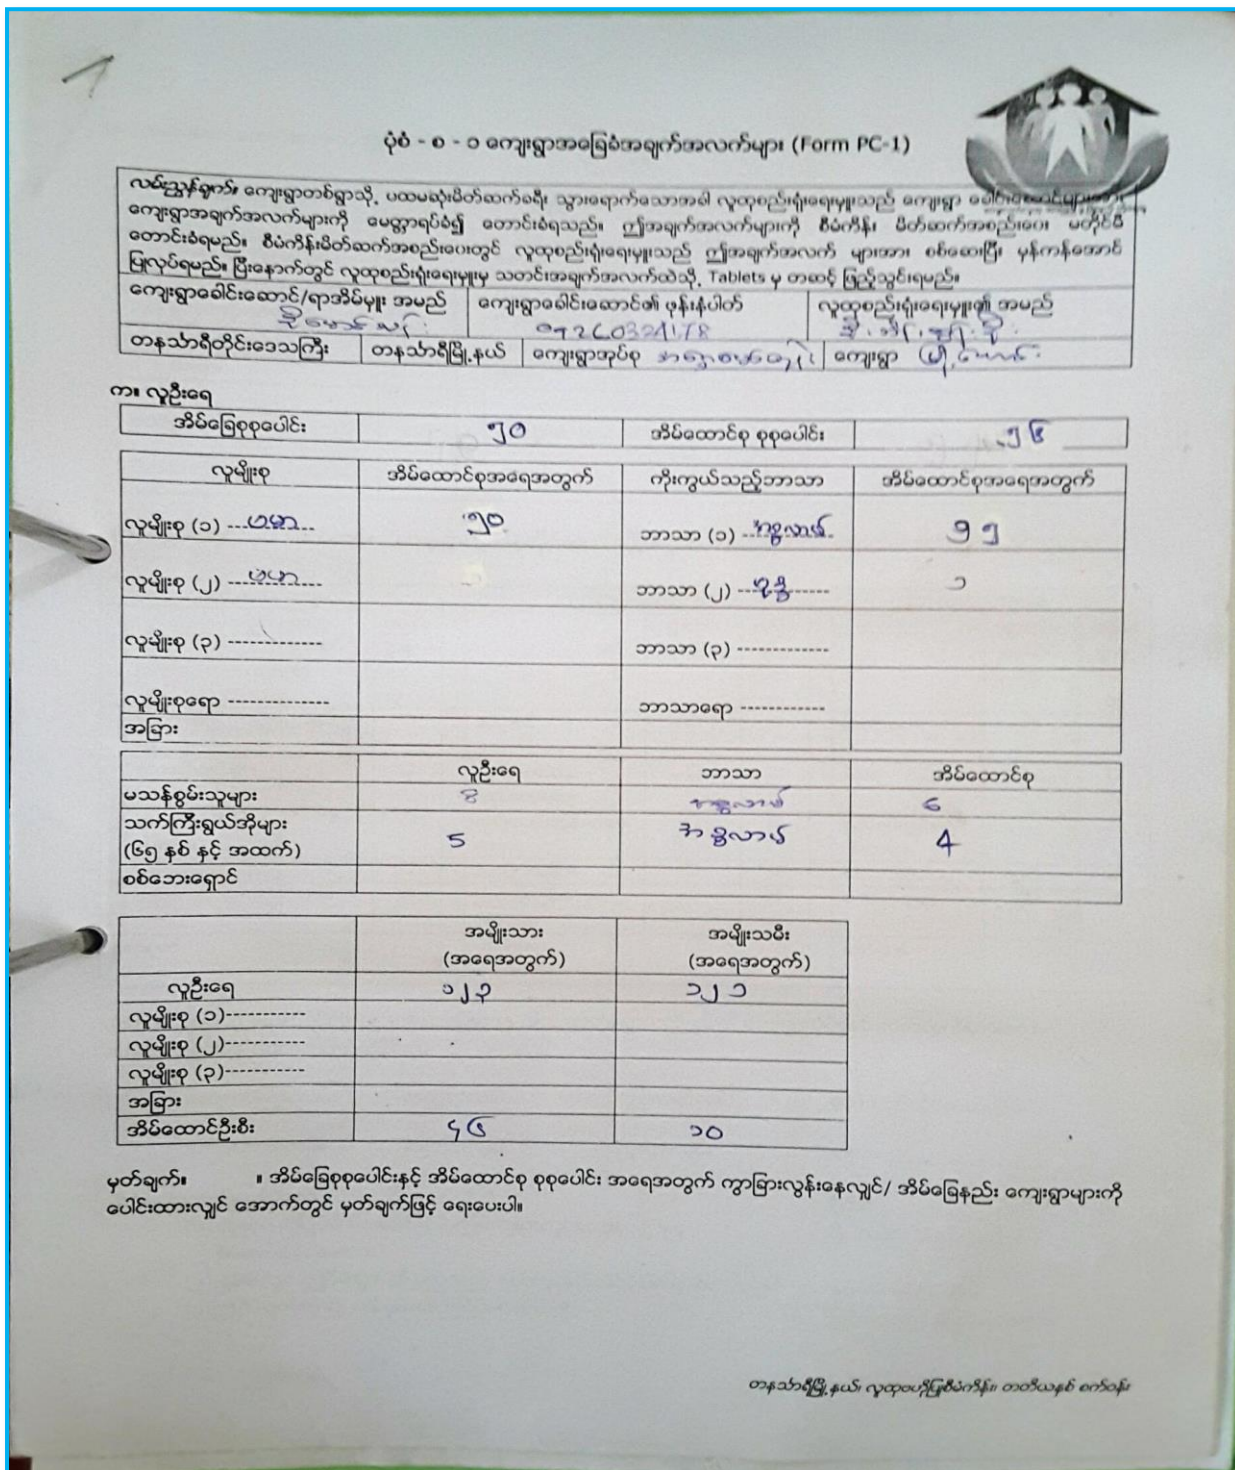 ပုံစံ - စ - ၁ ကျေးရွာအခြေခံအချက်အလက်များ (Form PC-1)
လမ်းညွှန်ချက်။ ကျေးရွာတစ်ရွာသို့ ပထမဆုံးမိတ်ဆက်ခရီး သွားရောက်သောအခါ လူထုစည်းရုံးရေးမှူးသည် ကျေးရွာ ခေါင်းဆောင်များထံ
ကျေးရွာအချက်အလက်များကို မေတ္တာရပ်ခံ၍ တောင်းခံရသည်။ ဤအချက်အလက်များကို စီမံကိန်း မိတ်ဆက်အစည်းဝေး မတိုင်မီ
တောင်းခံရမည်။ စီမံကိန်းမိတ်ဆက်အစည်းဝေးတွင် လူထုစည်းရုံးရေးမှူးသည် ဤအချက်အလက် များအား စစ်ဆေးပြီး မှန်ကန်အောင်
ပြုလုပ်ရမည်။ ပြီးနောက်တွင် လူထုစည်းရုံးရေးမှူးမှ သတင်းအချက်အလက်ထဲသို့ Tablets မှ တဆင့် ဖြည့်သွင်းရမည်။
ကျေးရွာခေါင်းဆောင်/ရာအိမ်မှူး အမည် ကျေးရွာခေါင်းဆောင်၏ ဖုန်းနံပါတ် လူထုစည်းရုံးရေးမှူး၏ အမည်
09260324178
တနင်္သာရီတိုင်းဒေသကြီး တနင်္သာရီမြို့နယ် ကျေးရွာအုပ်စု ကျေးရွာ
က။ လူဦးရေ
အိမ်ခြေစုစုပေါင်း ၅၀ အိမ်ထောင်စု စုစုပေါင်း ၅၆
လူမျိုးစု အိမ်ထောင်စုအရေအတွက် ကိုးကွယ်သည့်ဘာသာ အိမ်ထောင်စုအရေအတွက်
လူမျိုးစု (၁) ...ဗမာ... ၅၀ ဘာသာ (၁) ...အစ္စလာမ် ၅၅
လူမျိုးစု (၂) ...ဗမာ... ဘာသာ (၂) ---ဗုဒ္ဓ------ ၁
လူမျိုးစု (၃) ------------- ဘာသာ (၃) -------------
လူမျိုးစုရော -------------- ဘာသာရော ------------
အခြား
လူဦးရေ ဘာသာ အိမ်ထောင်စု
မသန်စွမ်းသူများ အစ္စလာမ် ၆
သက်ကြီးရွယ်အိုများ
(၆၅ နှစ် နှင့် အထက်) 5 အစ္စလာမ် 4
စစ်ဘေးရှောင်
အမျိုးသား အမျိုးသမီး
(အရေအတွက်) (အရေအတွက်)
လူဦးရေ ၁၂၃ ၁၂၁
လူမျိုးစု (၁)-----------
လူမျိုးစု (၂)-----------
လူမျိုးစု (၃)-----------
အခြား
အိမ်ထောင်ဦးစီး ၄၆ ၁၀
မှတ်ချက်။ ။ အိမ်ခြေစုစုပေါင်းနှင့် အိမ်ထောင်စု စုစုပေါင်း အရေအတွက် ကွာခြားလွန်းနေလျှင်/ အိမ်ခြေနည်း ကျေးရွာများကို
ပေါင်းထားလျှင် အောက်တွင် မှတ်ချက်ဖြင့် ရေးပေးပါ။
တနင်္သာရီမြို့နယ်၊ လူထုဗဟိုပြုစီမံကိန်း၊ တတိယနှစ် စက်ဝန်း